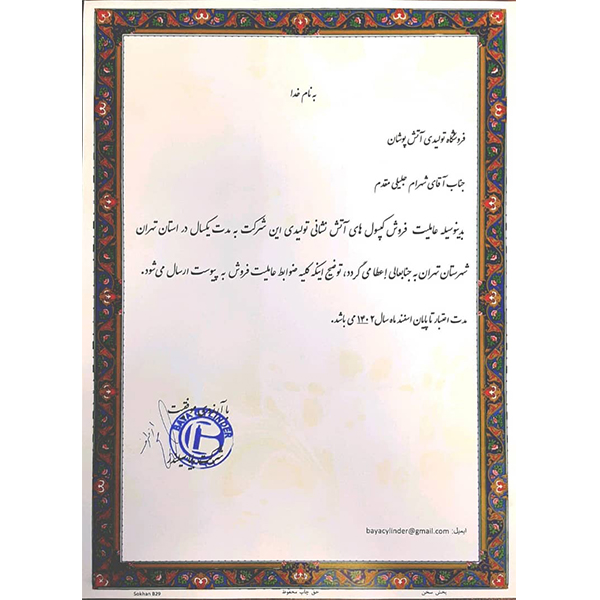 به نام خدا
فروشگاه تولیدی آتش پوشان
جناب آقای شهرام جلیلی مقدم
بدینوسیله عاملیت فروش کپسول های آتش نشانی تولیدی این شرکت به مدت یکسال در استان تهران
شهرستان تهران به جنابعالی اعطا می گردد، توضیح اینکه کلیه ضوابط عاملیت فروش به پیوست ارسال می شود.
مدت اعتبار تا پایان اسفند ماه سال ۱۴۰۲ می باشد.
با آرزوی موفقیت
BAYA CYLINDER
ایمیل: bayacylinder@gmail.com
Sokhan 829
حق چاپ محفوظ
پخش سخن